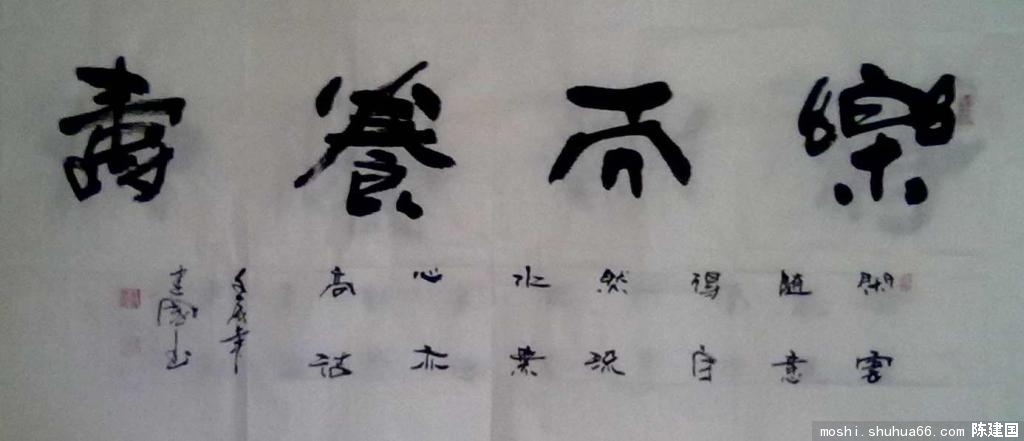 樂而養壽
閑雲
隨意
得自
然流
水素
心亦
高洁
壬辰年
建國书
moshi.shuhua66.com 陈建国